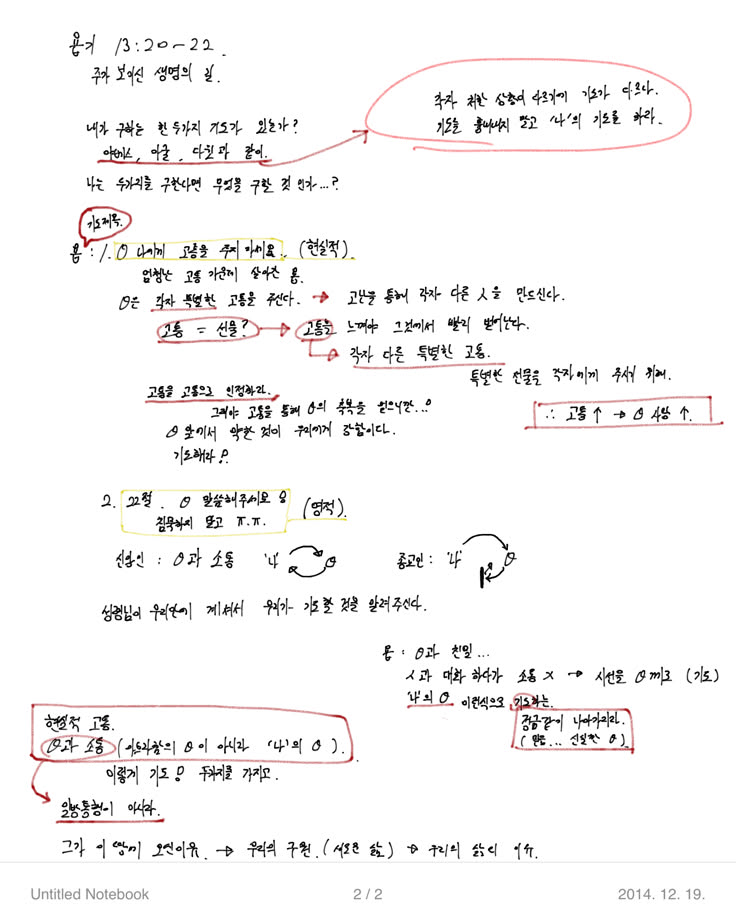 욥기 13:20-22.
주가 보이신 생명의 길.
각자 처한 상황이 다르기에 기도가 다르다.
기도를 흉내내지 말고 '나'의 기도를 하라.
내가 구하는 한 두가지 기도가 있는가?
야베스, 아굴, 다윗과 같이.
나는 두가지를 구한다면 무엇을 구할 것 인가...?
기도제목.
욥 : 1. θ 나에게 고통을 주지 마세요.. (현실적).
엄청난 고통 가운데 살아간 욥.
θ은 각자 특별한 고통을 주신다. → 고난을 통해 각자 다른 人을 만드신다.
고통 = 선물? → 고통을 느껴야 그것에서 빨리 벗어난다.
→ 각자 다른 특별한 고통.
특별한 선물을 각자에게 주시기 위해.
고통을 고통으로 인정하라.
그래야 고통을 통해 θ의 축복을 얻으니깐...!
∴ 고통↑ → θ 사랑↑.
θ 앞에서 약한 것이 우리에게 강함이다.
기도해라!
2. 22절. θ 말씀해주세요!
침묵하지 말고 ㅠ.ㅠ.
(영적).
신앙인 : θ과 소통 '나' θ
종교인 : '나' θ
성령님이 우리안에 계셔서 우리가 기도할 것을 알려주신다.
욥 : θ과 친밀...
人과 대화 하다가 소통 X → 시선을 θ께로 (기도)
'나'의 θ 이런식으로 기도하는.
정금같이 나아가리라.
(믿음... 신실한 θ).
현실적 고통.
θ과 소통 (아브라함의 θ이 아니라 '나'의 θ).
이렇게 기도! 두가지를 가지고.
일방통행이 아니라.
그가 이 땅에 오신이유. → 우리의 구원. (새로운 삶) → 우리의 삶의 이유.
Untitled Notebook
2 / 2
2014. 12. 19.